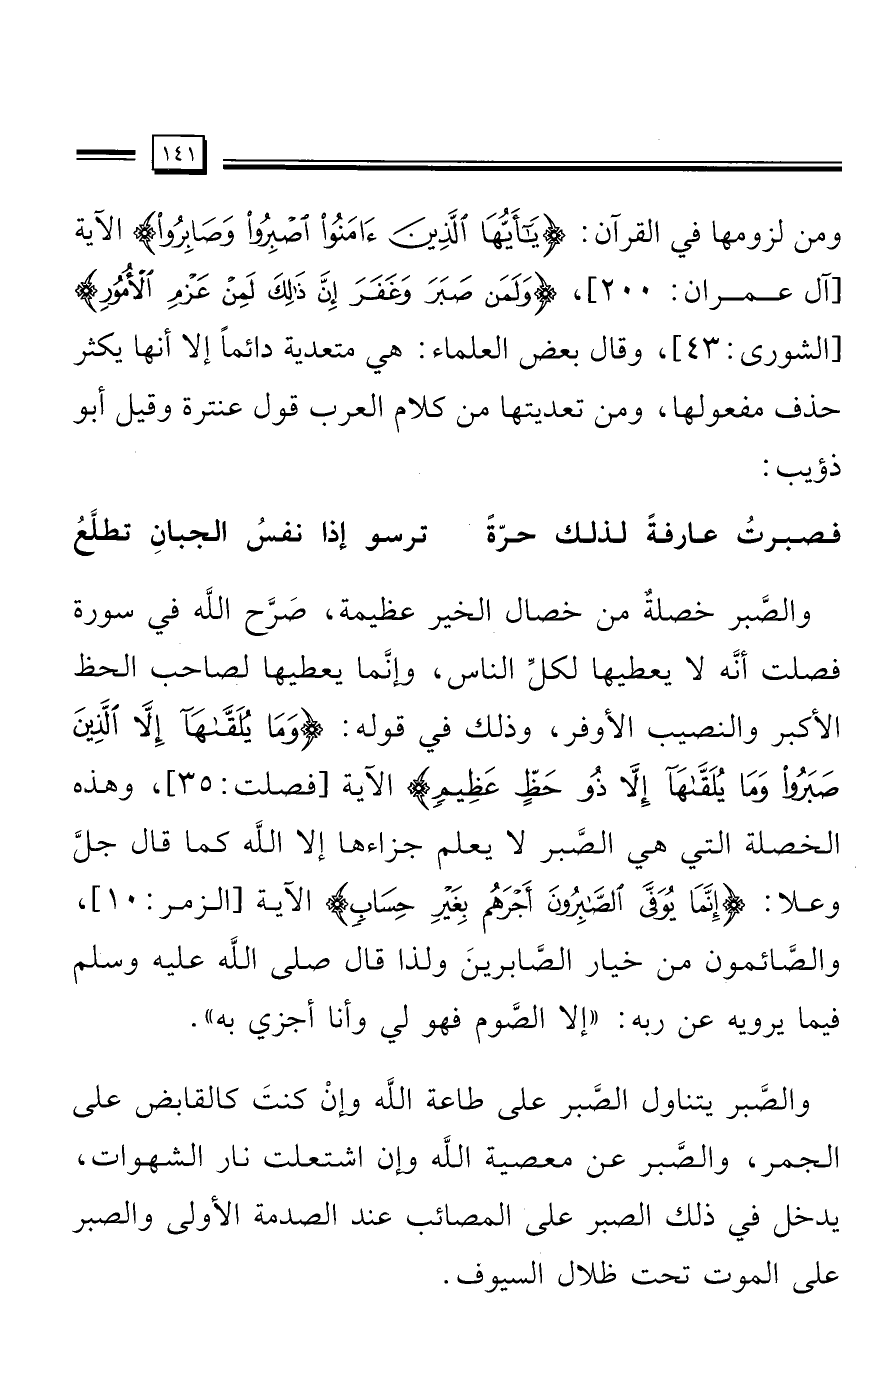 ١٤١
ومن لزومها في القرآن: ﴿يَٰٓأَيُّهَا ٱلَّذِينَ ءَامَنُوا۟ ٱصْبِرُوا۟ وَصَابِرُوا۟﴾ الآية
[آل عـمـران: ٢٠٠]، ﴿وَلَمَن صَبَرَ وَغَفَرَ إِنَّ ذَٰلِكَ لَمِنْ عَزْمِ ٱلْأُمُورِ﴾
[الشورى: ٤٣]، وقال بعض العلماء: هي متعدية دائماً إلا أنها يكثر
حذف مفعولها، ومن تعديتها من كلام العرب قول عنترة وقيل أبو
ذؤيب:
فصبرتُ عارفةً لذلك حرّةً ترسو إذا نفسُ الجبانِ تطلَّعُ
والصَّبر خصلةٌ من خصال الخير عظيمة، صَرَّح اللَّه في سورة
فصلت أنَّه لا يعطيها لكلِّ الناس، وإنَّما يعطيها لصاحب الحظ
الأكبر والنصيب الأوفر، وذلك في قوله: ﴿وَمَا يُلَقَّىٰهَآ إِلَّا ٱلَّذِينَ
صَبَرُوا۟ وَمَا يُلَقَّىٰهَآ إِلَّا ذُو حَظٍّ عَظِيمٍ﴾ الآية [فصلت: ٣٥]، وهذه
الخصلة التي هي الصَّبر لا يعلم جزاءها إلا اللَّه كما قال جلَّ
وعلا: ﴿إِنَّمَا يُوَفَّى ٱلصَّٰبِرُونَ أَجْرَهُم بِغَيْرِ حِسَابٍ﴾ الآية [الزمر: ١٠]،
والصَّائمون من خيار الصَّابرينَ ولذا قال صلى اللَّه عليه وسلم
فيما يرويه عن ربه: «إلا الصَّوم فهو لي وأنا أجزي به».
والصَّبر يتناول الصَّبر على طاعة اللَّه وإنْ كنتَ كالقابض على
الجمر، والصَّبر عن معصية اللَّه وإن اشتعلت نار الشهوات،
يدخل في ذلك الصبر على المصائب عند الصدمة الأولى والصبر
على الموت تحت ظلال السيوف.